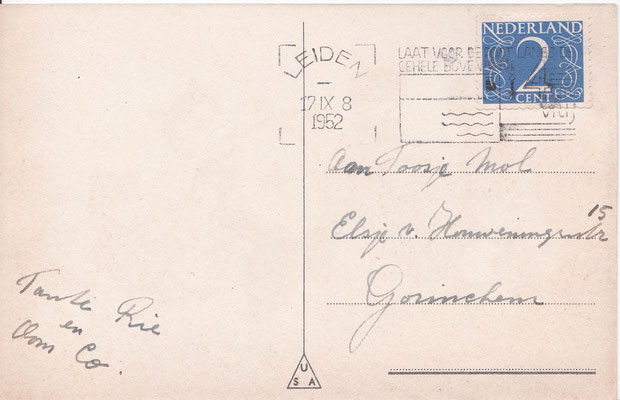 LEIDEN
17 IX 8
1952
LAAT VOOR DE
GEHELE BOVE
VRIJ
NEDERLAND
2
CENT
Aan Toosje Mol
15
Elsje v. Houweningestr
Gorinchem
Tante Rie
en
Oom Co.
U
S A